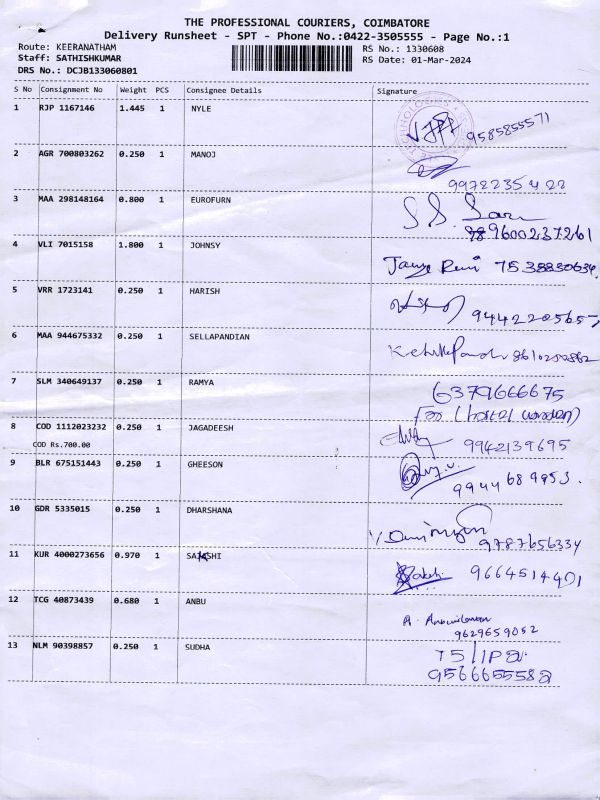 THE PROFESSIONAL COURIERS, COIMBATORE
Delivery Runsheet - SPT - Phone No.:0422-3505555 - Page No.:1
Route: KEERANATHAM RS No.: 1330608
Staff: SATHISHKUMAR RS Date: 01-Mar-2024
DRS No.: DCJB133060801
S No Consignment No Weight PCS Consignee Details Signature
1 RJP 1167146 1.445 1 NYLE
9585855571
2 AGR 700803262 0.250 1 MANOJ
9972235422
3 MAA 298148164 0.800 1 EUROFURN
9600237261
4 VLI 7015158 1.800 1 JOHNSY
7538830634
5 VRR 1723141 0.250 1 HARISH
6 MAA 944675332 0.250 1 SELLAPANDIAN
7 SLM 340649137 0.250 1 RAMYA 6379666675
For (hostel warden)
8 COD 1112023232 0.250 1 JAGADEESH
COD Rs.700.00 9942139695
9 BLR 675151443 0.250 1 GHEESON
9944689953.
10 GDR 5335015 0.250 1 DHARSHANA
9787656334
11 KUR 4000273656 0.970 1 SAKSHI
Sakshi 9664514401
12 TCG 40873439 0.680 1 ANBU
9629659052
13 NLM 90398857 0.250 1 SUDHA
9566655582